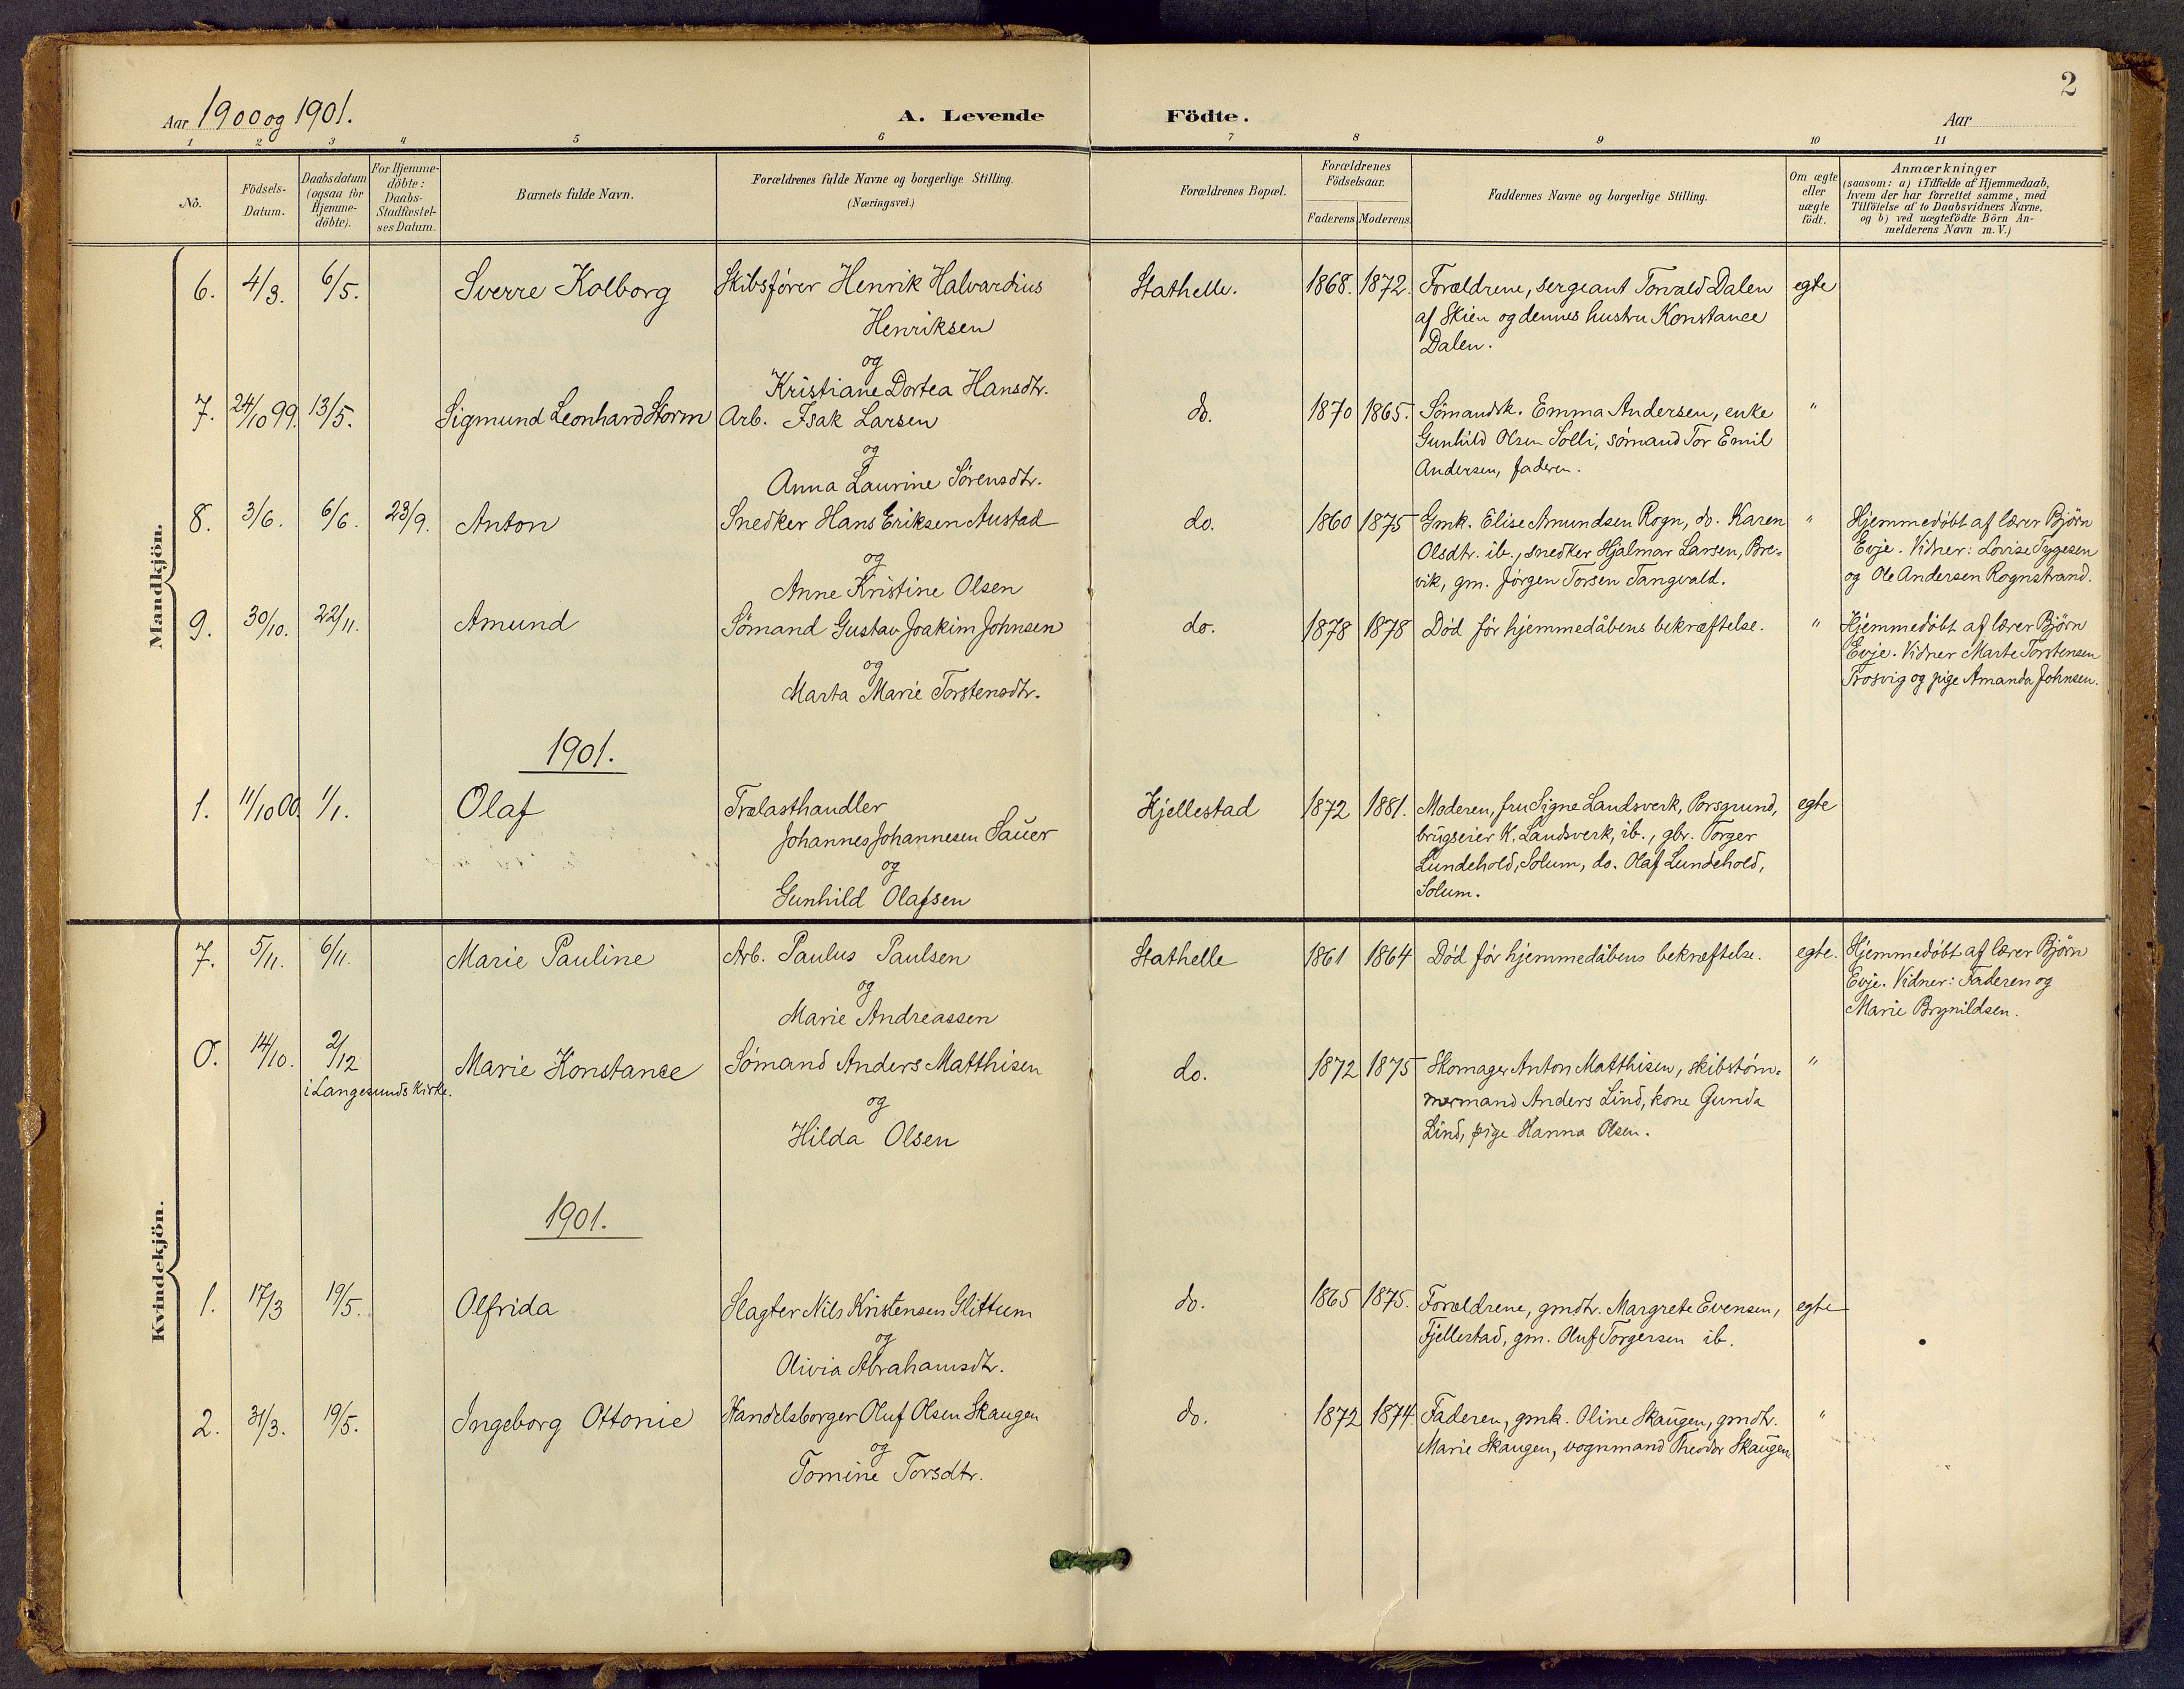 2
Aar 1900 og 1901.
A. Levende Födte.
Aar
1 2 3 4 5 6 7 8 9 10 11
No.
Födsels-Datum.
Daabsdatum (ogsaa for Hjemme-döbte).
For Hjemme-döbte: Daabs-Stadfæstel-ses Datum.
Barnets fulde Navn.
Forældrenes fulde Navne og borgerlige Stilling. (Næringsvei.)
Forældrenes Bopæl.
Forældrenes Födselsaar.
Faderens Moderens
Faddernes Navne og borgerlige Stilling.
Om ægte eller uægte födt.
Anmærkninger
(saasom: a) i Tilfælde af Hjemmedaab,
hvem der har forrettet samme, med
Tilföielse af to Daabsvidners Navne,
og b) ved uægtefödte Börn An-
melderens Navn m.V.)
Mandkjön.
6. 4/3. 6/5. Sverre Kolborg Skibsfører Henrik Halvardius Stathelle. 1868. 1872. Forældrene, sergeant Torvald Dalen egte
Henriksen af Skien og dennes hustru Konstance
og Dalen.
Kristiane Dortea Hansdtr.
7. 24/10 99. 13/5. Sigmund Leonhard Storm Arb. Isak Larsen do. 1870 1865. Sømandsk. Emma Andersen, enke "
og Gunhild Olsen Solli, sømand Tor Emil
Anna Laurine Sørensdtr. Andersen, faderen.
8. 3/6. 6/6. 23/9. Anton Snedker Hans Eriksen Austad do. 1860 1875 Gmk. Elise Amundsen Rogn, do. Karen " Hjemmedøbt af lærer Bjørn
og Olsdtr. ib., snedker Hjalmar Larsen, Bre- Evje. Vidner: Lovise Tygesen
Anne Kristine Olsen vik, gm. Jørgen Torsen Tangvald. og Ole Andersen Rognstrand.
9. 30/10. 22/11. Amund Sømand Gustav Joakim Johnsen do. 1878 1878 Død før hjemmedåbens bekræftelse. " Hjemmedøbt af lærer Bjørn
og Evje. Vidner Marte Torstensen
Marta Marie Torstensdtr. Trosvig og pige Amanda Johnsen.
1901.
1. 11/10 00. 1/1. Olaf Trælasthandler Kjellestad 1872 1881. Moderen, fru Signe Landsverk, Porsgrund, egte
Johannes Johannesen Sauer brugseier K. Landsverk, ib., gbr. Torger
og Lundehold, Solum, do. Olaf Lundehold,
Gunhild Olafsen Solum.
Kvindekjön.
7. 5/11. 6/11. Marie Pauline Arb. Paulus Paulsen Stathelle 1861 1864 Død før hjemmedåbens bekræftelse. egte. Hjemmedøbt af lærer Bjørn
og Evje. Vidner: Faderen og
Marie Andreassen Marie Brynildsen.
0. 14/10. 2/12 Marie Konstance Sømand Anders Matthisen do. 1872 1875 Skomager Anton Matthisen, skibstøm- "
i Langesunds Kirke. og mermand Anders Lind, kone Gunda
Hilda Olsen Lind, pige Hanna Olsen.
1901.
1. 17/3 19/5. Olfrida Slagter Nils Kristensen Glittum do. 1865 1875. Forældrene, gmdtr. Margrete Evensen, egte
og Fjellestad, gm. Oluf Torgersen ib.
Olivia Abrahamsdtr.
2. 31/3. 19/5. Ingeborg Ottonie Handelsborger Oluf Olsen Skaugen do. 1872 1874. Faderen, gmk. Oline Skaugen, gmdtr. "
og Marie Skaugen, vognmand Theodor Skaugen
Tomine Torsdtr.